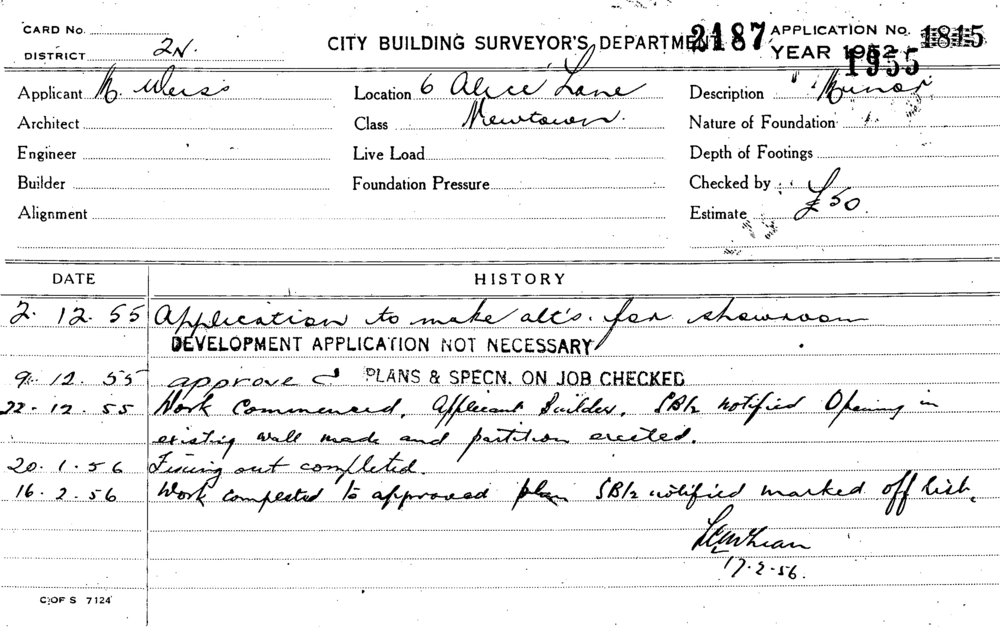 CARD No.
DISTRICT 2N. CITY BUILDING SURVEYOR'S DEPARTMENT 2187 APPLICATION No. 1815
YEAR 1952 1955
Applicant M. Weiss Location 6 Alice Lane Description Minor
Architect Class Newtown. Nature of Foundation
Engineer Live Load Depth of Footings
Builder Foundation Pressure Checked by
Alignment Estimate £50.
DATE HISTORY
2. 12. 55 Application to make alt's. for showroom
DEVELOPMENT APPLICATION NOT NECESSARY
9. 12. 55 approved PLANS & SPECN. ON JOB CHECKED
22. 12. 55 Work Commenced. Applicant Builder. notified Opening in
existing wall made and partition erected.
20. 1. 56 out completed.
16. 2. 56 Work completed to approved plan notified marked off list.
17. 2. 56.
C. OF S 7124